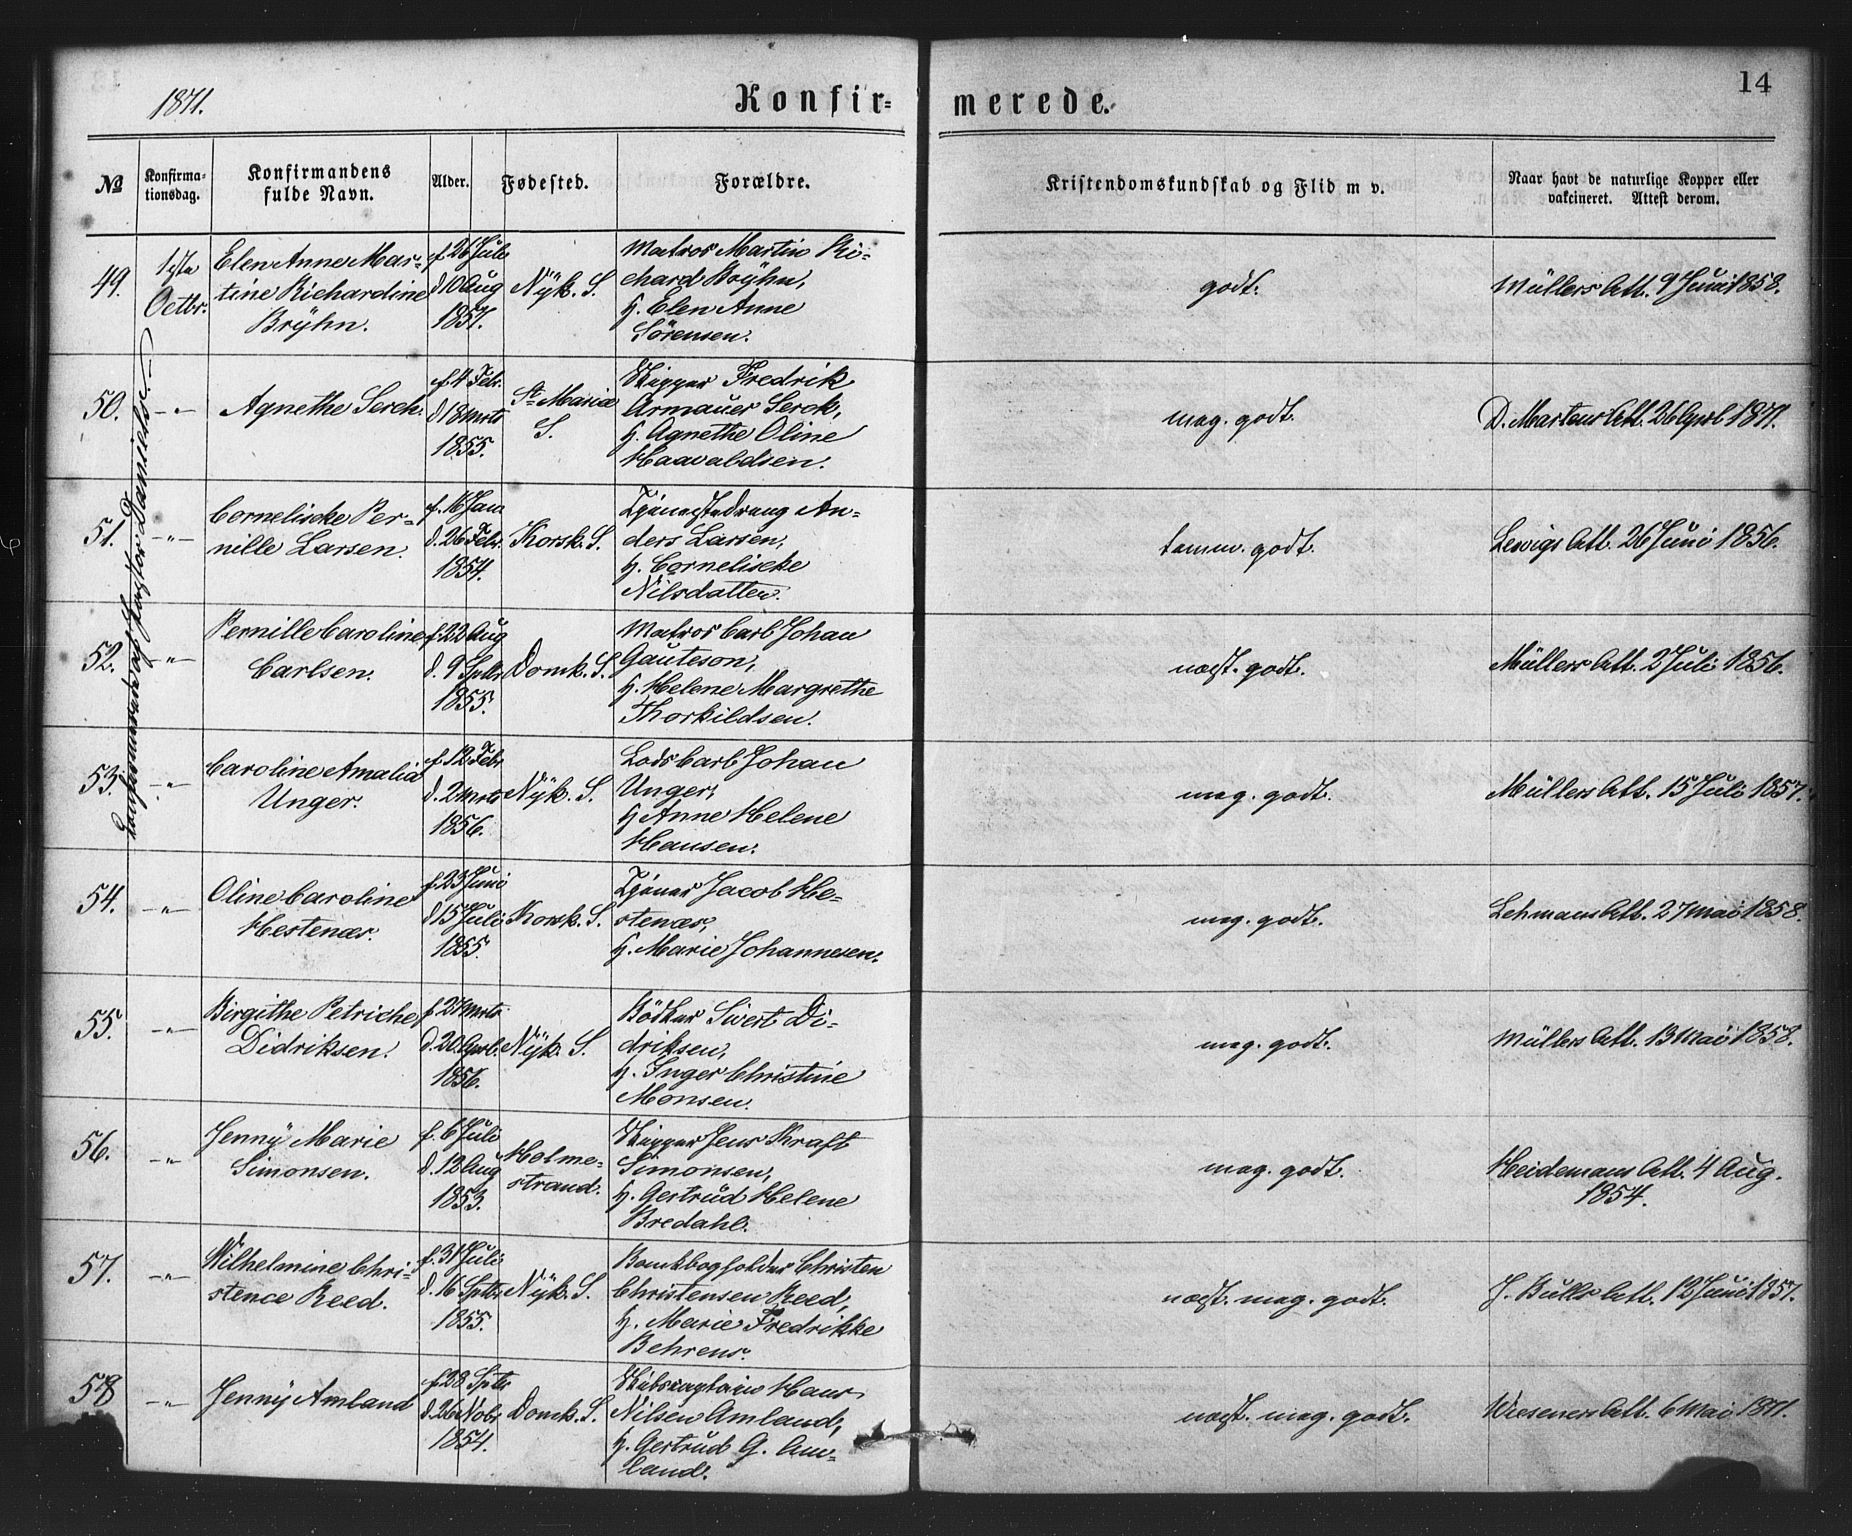 1871.
Konfir-
merede.
14
No
Konfirma-
tionsdag.
Konfirmandens
fulde Navn.
Alder.
Fødested.
Forældre.
Kristendomskundskab og Flid m v.
Naar havt de naturlige Kopper eller
vakcineret. Attest derom.
49.
1ste
Octbr.
Elen Anne Mar-
tine Richardine
Brÿhn.
f. 26 Juli
d. 10 Aug
1857.
Nÿk. S.
Matros Martin Ri-
chard Brÿhn,
H. Elen Anne
Sørensen.
godt.
Müllers Att. 9 Juni 1858.
50.
-"-
Agnethe Serck.
f. 4 Febr.
d. 18 Mrts
1855.
St. Mariæ
S.
Skipper Fredrik
Armauer Serck,
H. Agnethe Oline
Haavaldsen.
meg. godt.
D. Martens Att. 26 Aprl 1871.
51.
-"-
Cornelische Per-
nille Larsen.
f. 16 Jan
d. 26 Febr.
1854.
Korsk. S.
Tjenestedreng An-
ders Larsen,
H. Cornelische
Nilsdatter.
temm. godt.
Lewigs Att. 26 Juni 1856.
52.
-"-
Pernille Caroline
Carlsen.
f. 22 Aug
d. 9 Sptbr
1855.
Domk. S.
Matros Carl Johan
Gauteson,
H. Helene Margrethe
Thorkildsen.
næst. godt.
Müllers Att. 2 Juli 1856.
53.
-"-
Caroline Amalia
Unger.
f. 12 Febr
d. 2 Mrts
1856.
Nÿk. S.
Lods Carl Johan
Unger,
H Anne Helene
Hansen.
meg. godt.
Müllers Att. 15 Juli 1857.
54.
-"-
Oline Caroline
Hestenæs.
f. 23 Juni
d. 15 Juli
1855.
Korsk. S.
Tjener Jacob He-
stenæs,
H. Marie Johannesen.
meg. godt.
Lehmans Att. 27 Mai 1858.
55.
-"-
Birgithe Petriche
Didriksen.
f. 27 Mrts
d. 20 Aprl.
1856.
Nÿk. S.
Bødker Sivert Di-
driksen,
H. Inger Christine
Monsen.
meg. godt.
Müllers Att. 13 Mai 1858.
56.
-"-
Jennÿ Marie
Simonsen.
f. 6 Juli
d. 12 Aug
1853.
Holme-
strand.
Skipper Jens Kraft
Simonsen,
H. Gertrud Helene
Bredahl.
meg. godt.
Heidemans Att. 4 Aug.
1854.
57.
-"-
Wilhelmine Chri-
stence Reed.
f. 31 Juli
d. 16 Sptbr
1855.
Nÿk. S.
Bankbogholder Christen
Christensen Reed,
H. Marie Fredrikke
Behrens.
næst. meg. godt.
J. Bulls Att. 12 Juni 1857.
58
-"-
Jennÿ Amland
f. 28 Sptr
d. 26 Nobr
1854.
Domk. S.
Skibscaptain Hans
Nilsen Amland,
H. Gertrud G. Am-
land.
næst. meg. godt.
Wieseners Att. 6 Mai 1871.